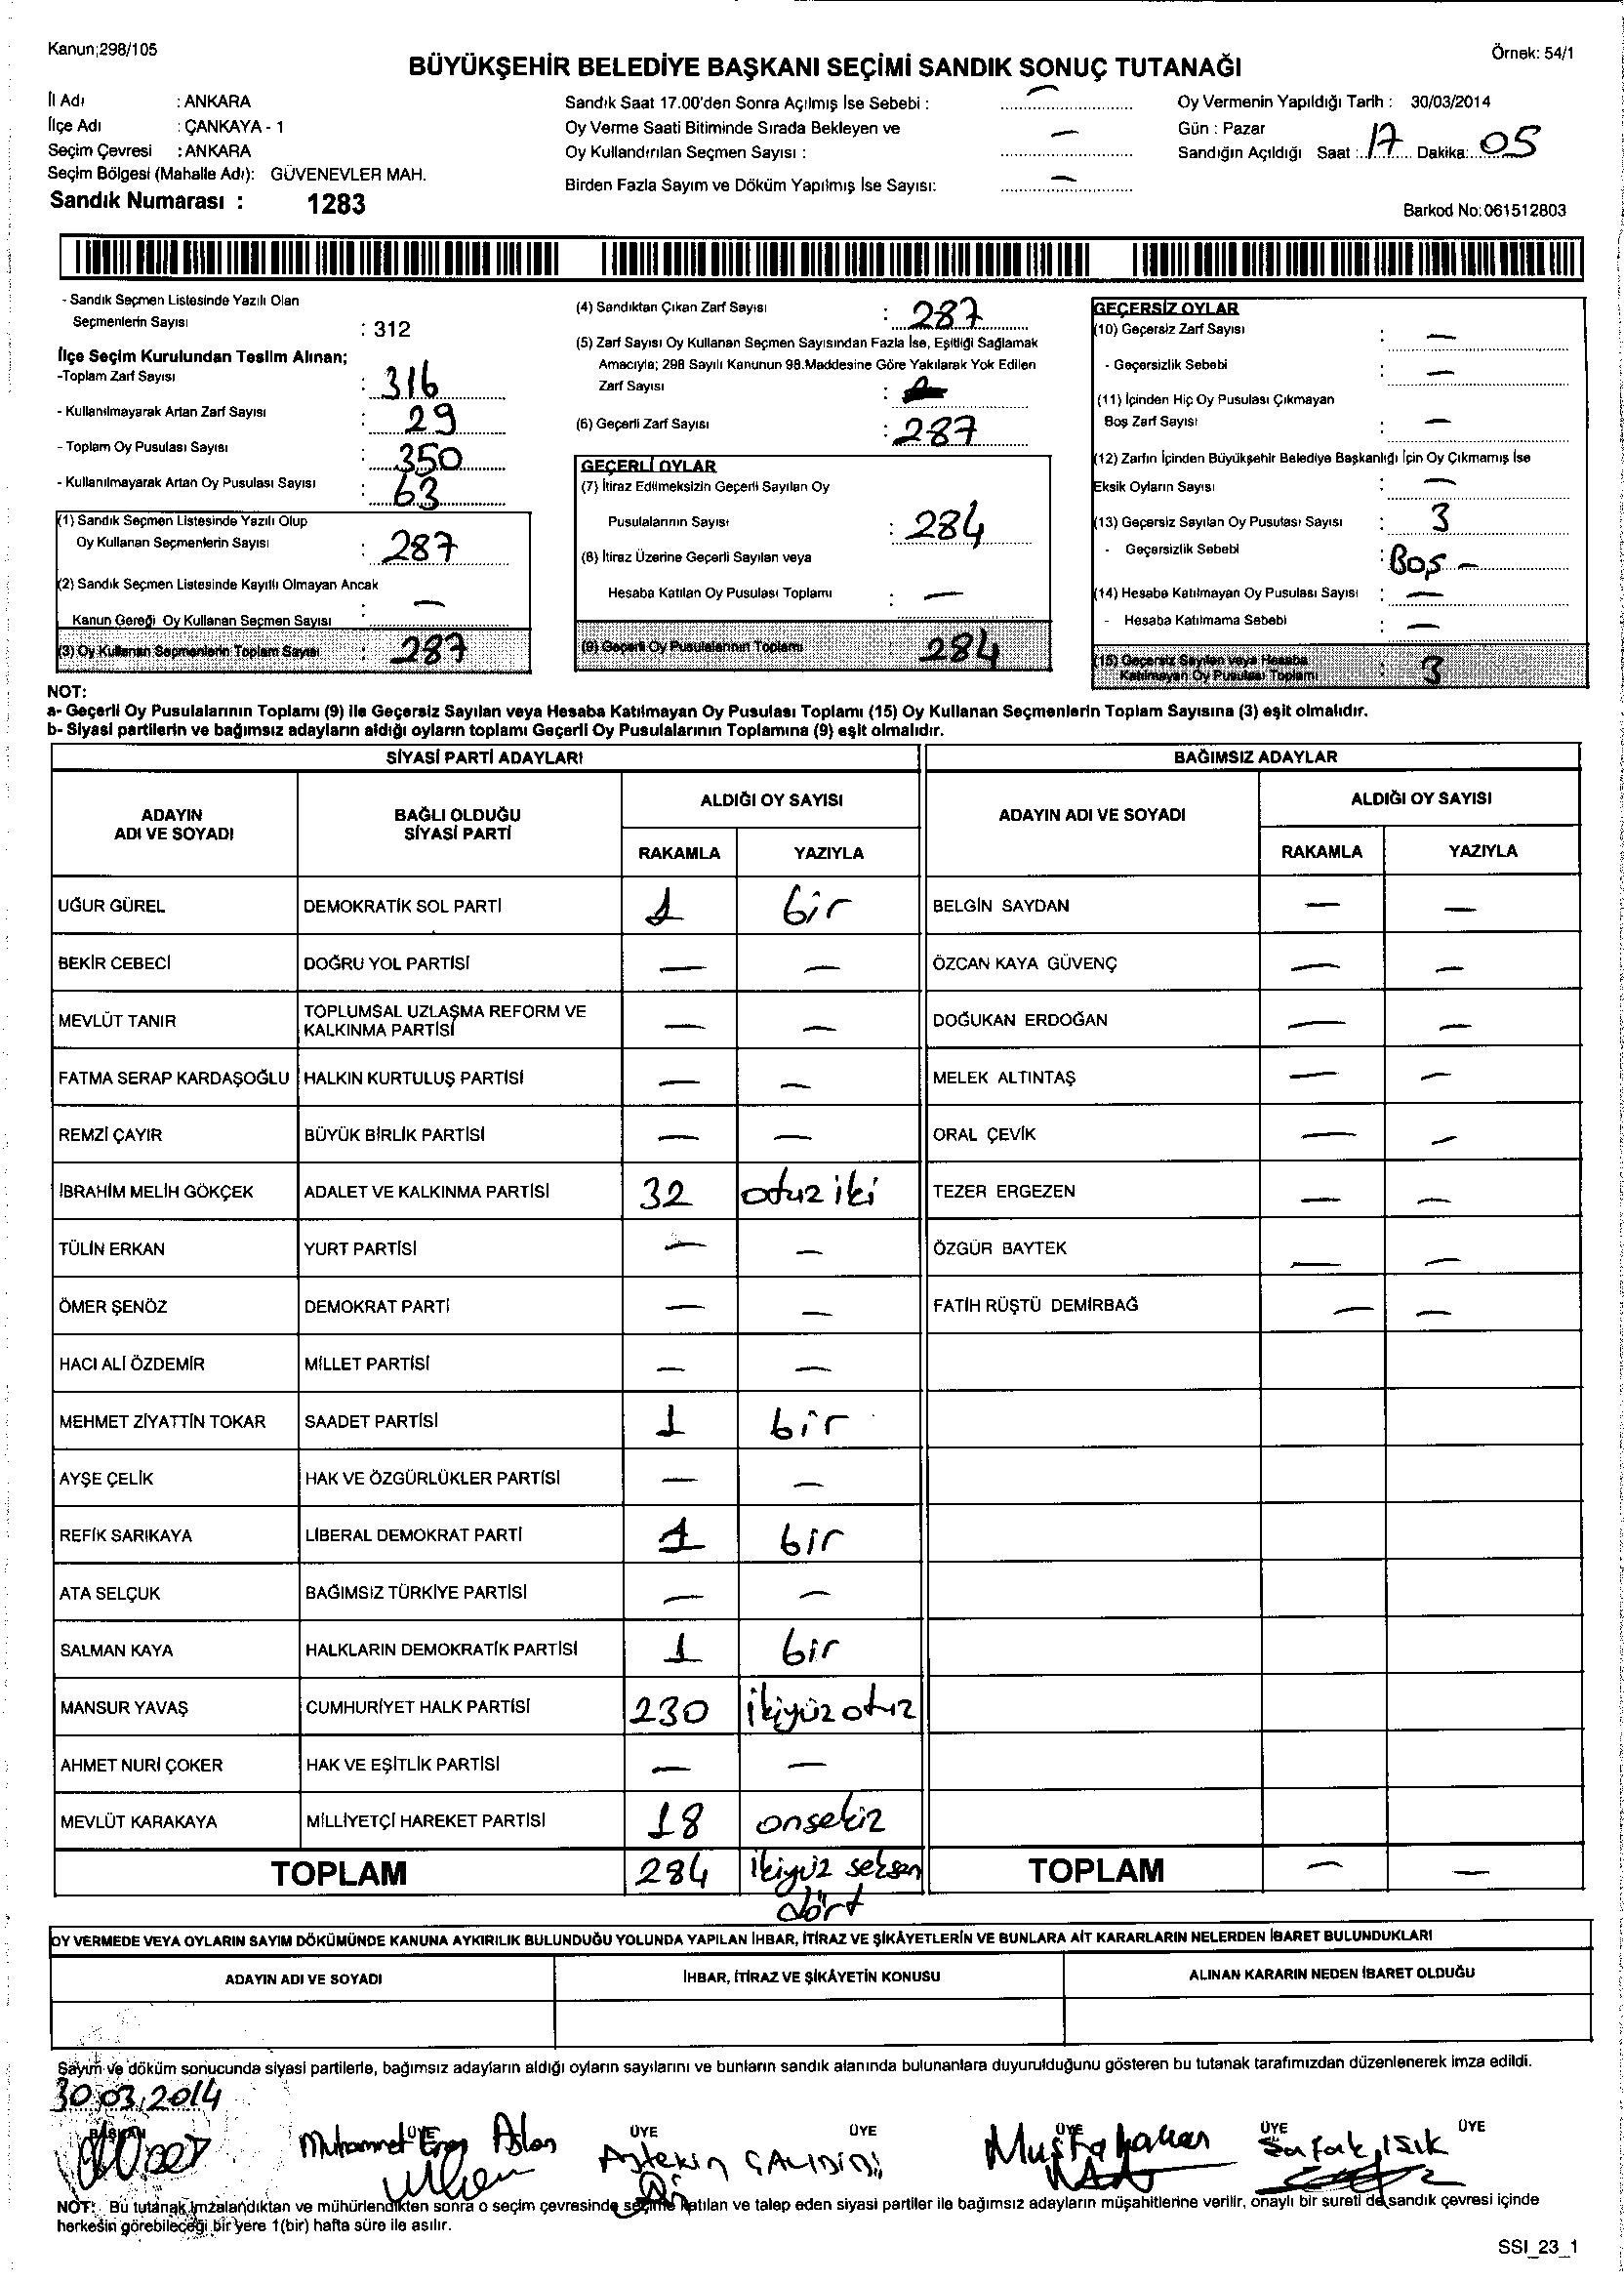 Kanun;298/105
Örnek: 54/1
BÜYÜKŞEHİR BELEDİYE BAŞKANI SEÇİMİ SANDIK SONUÇ TUTANAĞI
İl Adı : ANKARA
İlçe Adı : ÇANKAYA - 1
Seçim Çevresi : ANKARA
Seçim Bölgesi (Mahalle Adı): GÜVENEVLER MAH.
Sandık Numarası : 1283
Sandık Saat 17.00'den Sonra Açılmış İse Sebebi : —
Oy Verme Saati Bitiminde Sırada Bekleyen ve
Oy Kullandırılan Seçmen Sayısı : —
Birden Fazla Sayım ve Döküm Yapılmış İse Sayısı: —
Oy Vermenin Yapıldığı Tarih : 30/03/2014
Gün : Pazar
Sandığın Açıldığı Saat : 17 Dakika: 05
Barkod No: 061512803
- Sandık Seçmen Listesinde Yazılı Olan
Seçmenlerin Sayısı : 312
İlçe Seçim Kurulundan Teslim Alınan;
-Toplam Zarf Sayısı : 316
- Kullanılmayarak Artan Zarf Sayısı : 29
- Toplam Oy Pusulası Sayısı : 350
- Kullanılmayarak Artan Oy Pusulası Sayısı : 63
(1) Sandık Seçmen Listesinde Yazılı Olup
Oy Kullanan Seçmenlerin Sayısı : 287
(2) Sandık Seçmen Listesinde Kayıtlı Olmayan Ancak
Kanun Gereği Oy Kullanan Seçmen Sayısı : —
(3) Oy Kullanan Seçmenlerin Toplam Sayısı : 287
(4) Sandıktan Çıkan Zarf Sayısı : 287
(5) Zarf Sayısı Oy Kullanan Seçmen Sayısından Fazla İse, Eşitliği Sağlamak
Amacıyla; 298 Sayılı Kanunun 98.Maddesine Göre Yakılarak Yok Edilen
Zarf Sayısı :
(6) Geçerli Zarf Sayısı : 287
GEÇERLİ OYLAR
(7) İtiraz Edilmeksizin Geçerli Sayılan Oy
Pusulalarının Sayısı : 284
(8) İtiraz Üzerine Geçerli Sayılan veya
Hesaba Katılan Oy Pusulası Toplamı : —
(9) Geçerli Oy Pusulalarının Toplamı 284
GEÇERSİZ OYLAR
(10) Geçersiz Zarf Sayısı : —
- Geçersizlik Sebebi : —
(11) İçinden Hiç Oy Pusulası Çıkmayan
Boş Zarf Sayısı : —
(12) Zarfın İçinden Büyükşehir Belediye Başkanlığı İçin Oy Çıkmamış İse
Eksik Oyların Sayısı : —
(13) Geçersiz Sayılan Oy Pusulası Sayısı : 3
- Geçersizlik Sebebi : Boş -
(14) Hesaba Katılmayan Oy Pusulası Sayısı : —
- Hesaba Katılmama Sebebi : —
(15) Geçersiz Sayılan veya Hesaba
Katılmayan Oy Pusulası Toplamı : 3
NOT:
a- Geçerli Oy Pusulalarının Toplamı (9) ile Geçersiz Sayılan veya Hesaba Katılmayan Oy Pusulası Toplamı (15) Oy Kullanan Seçmenlerin Toplam Sayısına (3) eşit olmalıdır.
b- Siyasi partilerin ve bağımsız adayların aldığı oyların toplamı Geçerli Oy Pusulalarının Toplamına (9) eşit olmalıdır.
SİYASİ PARTİ ADAYLARI BAĞIMSIZ ADAYLAR
ADAYIN ADI VE SOYADI BAĞLI OLDUĞU SİYASİ PARTİ ALDIĞI OY SAYISI ADAYIN ADI VE SOYADI ALDIĞI OY SAYISI
RAKAMLA YAZIYLA RAKAMLA YAZIYLA
UĞUR GÜREL DEMOKRATİK SOL PARTİ 1 bir BELGİN SAYDAN — —
BEKİR CEBECİ DOĞRU YOL PARTİSİ — — ÖZCAN KAYA GÜVENÇ — —
MEVLÜT TANIR TOPLUMSAL UZLAŞMA REFORM VE KALKINMA PARTİSİ — — DOĞUKAN ERDOĞAN — —
FATMA SERAP KARDAŞOĞLU HALKIN KURTULUŞ PARTİSİ — — MELEK ALTINTAŞ — —
REMZİ ÇAYIR BÜYÜK BİRLİK PARTİSİ — — ORAL ÇEVİK — —
İBRAHİM MELİH GÖKÇEK ADALET VE KALKINMA PARTİSİ 32 otuz iki TEZER ERGEZEN — —
TÜLİN ERKAN YURT PARTİSİ — — ÖZGÜR BAYTEK — —
ÖMER ŞENÖZ DEMOKRAT PARTİ — — FATİH RÜŞTÜ DEMİRBAĞ — —
HACI ALİ ÖZDEMİR MİLLET PARTİSİ — —
MEHMET ZİYATTİN TOKAR SAADET PARTİSİ 1 bir
AYŞE ÇELİK HAK VE ÖZGÜRLÜKLER PARTİSİ — —
REFİK SARIKAYA LİBERAL DEMOKRAT PARTİ 1 bir
ATA SELÇUK BAĞIMSIZ TÜRKİYE PARTİSİ — —
SALMAN KAYA HALKLARIN DEMOKRATİK PARTİSİ 1 bir
MANSUR YAVAŞ CUMHURİYET HALK PARTİSİ 230 ikiyüz otuz
AHMET NURİ ÇOKER HAK VE EŞİTLİK PARTİSİ — —
MEVLÜT KARAKAYA MİLLİYETÇİ HAREKET PARTİSİ 18 onsekiz
TOPLAM 284 ikiyüz seksen dört TOPLAM — —
OY VERMEDE VEYA OYLARIN SAYIM DÖKÜMÜNDE KANUNA AYKIRILIK BULUNDUĞU YOLUNDA YAPILAN İHBAR, İTİRAZ VE ŞİKÂYETLERİN VE BUNLARA AİT KARARLARIN NELERDEN İBARET BULUNDUKLARI
ADAYIN ADI VE SOYADI İHBAR, İTİRAZ VE ŞİKÂYETİN KONUSU ALINAN KARARIN NEDEN İBARET OLDUĞU
Sayım ve döküm sonucunda siyasi partilerle, bağımsız adayların aldığı oyların sayılarını ve bunların sandık alanında bulunanlara duyurulduğunu gösteren bu tutanak tarafımızdan düzenlenerek imza edildi.
30.03.2014
BAŞKAN ÜYE ÜYE ÜYE ÜYE ÜYE ÜYE
Muhammet Eren Aslan Aytekin Mustafa Safak IŞIK
NOT: Bu tutanak imzalandıktan ve mühürlendikten sonra o seçim çevresinde seçime katılan ve talep eden siyasi partiler ile bağımsız adayların müşahitlerine verilir, onaylı bir sureti de sandık çevresi içinde
herkesin görebileceği bir yere 1(bir) hafta süre ile asılır.
SSI_23_1